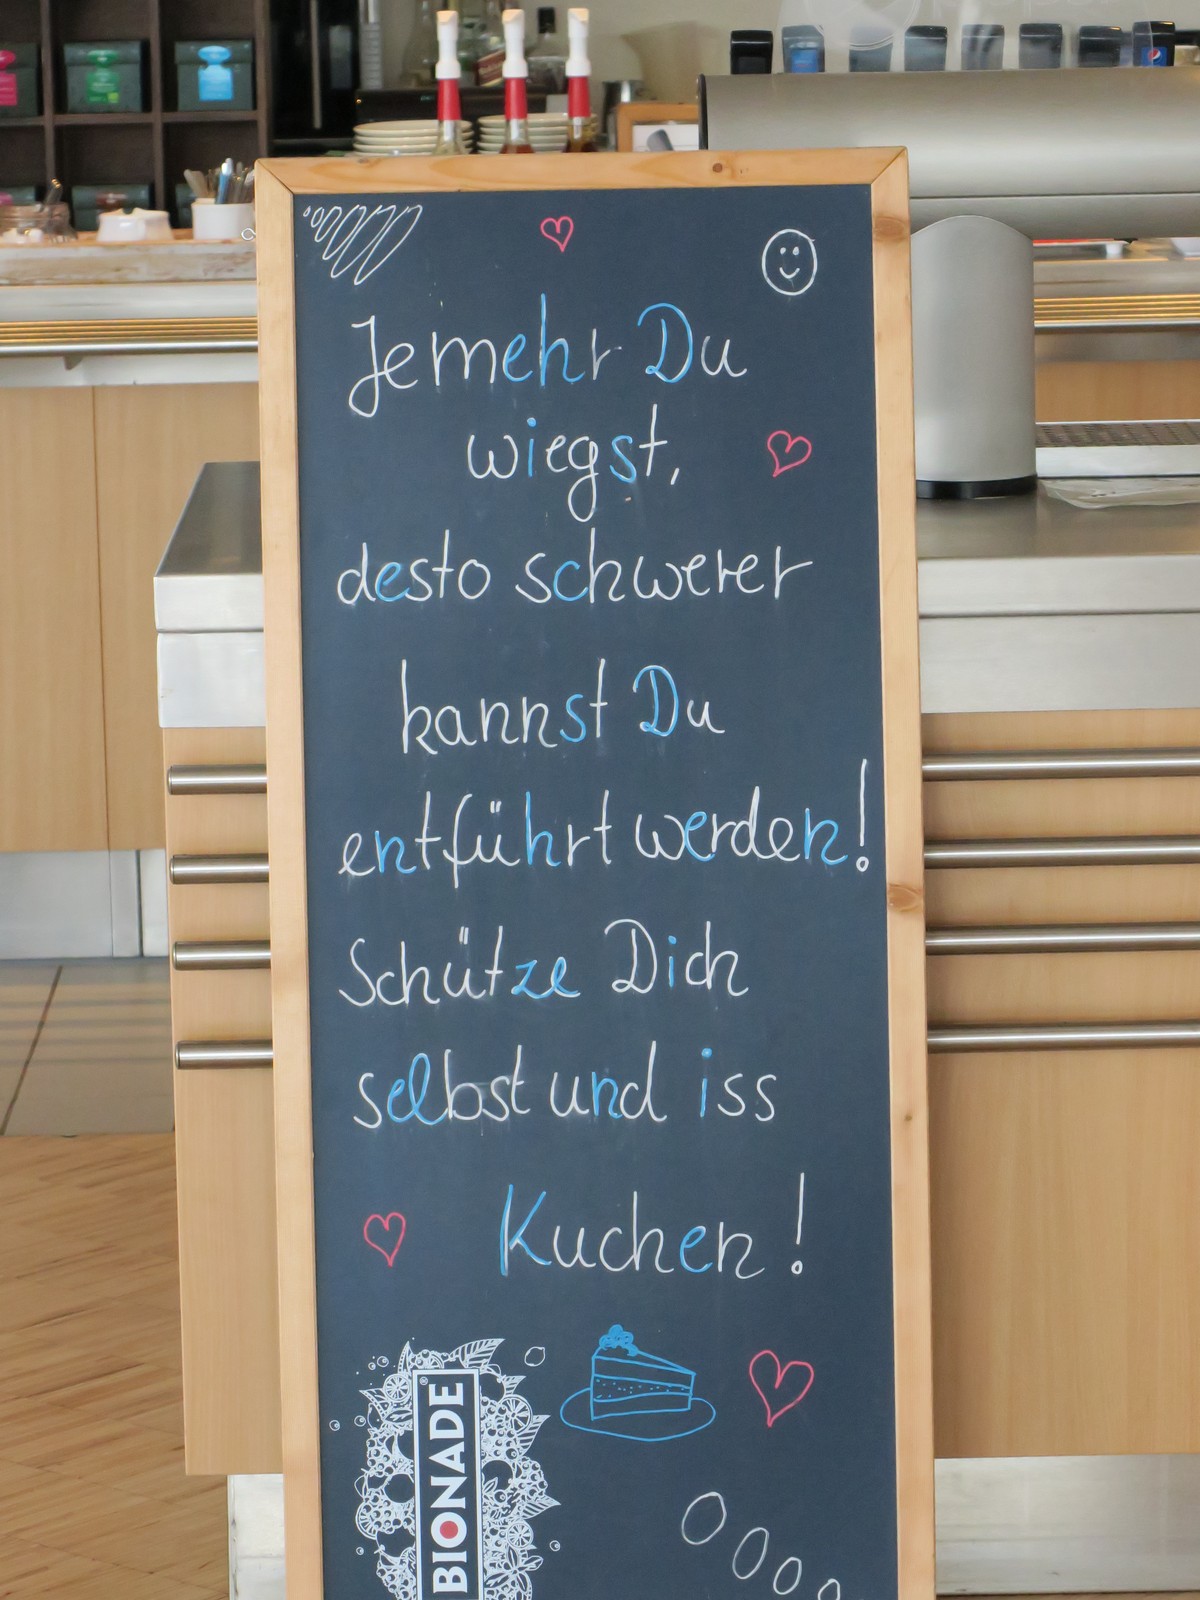 Je mehr Du
wiegst,
desto schwerer
kannst Du
entführt werden!
Schütze Dich
selbst und iss
Kuchen!
BIONADE®